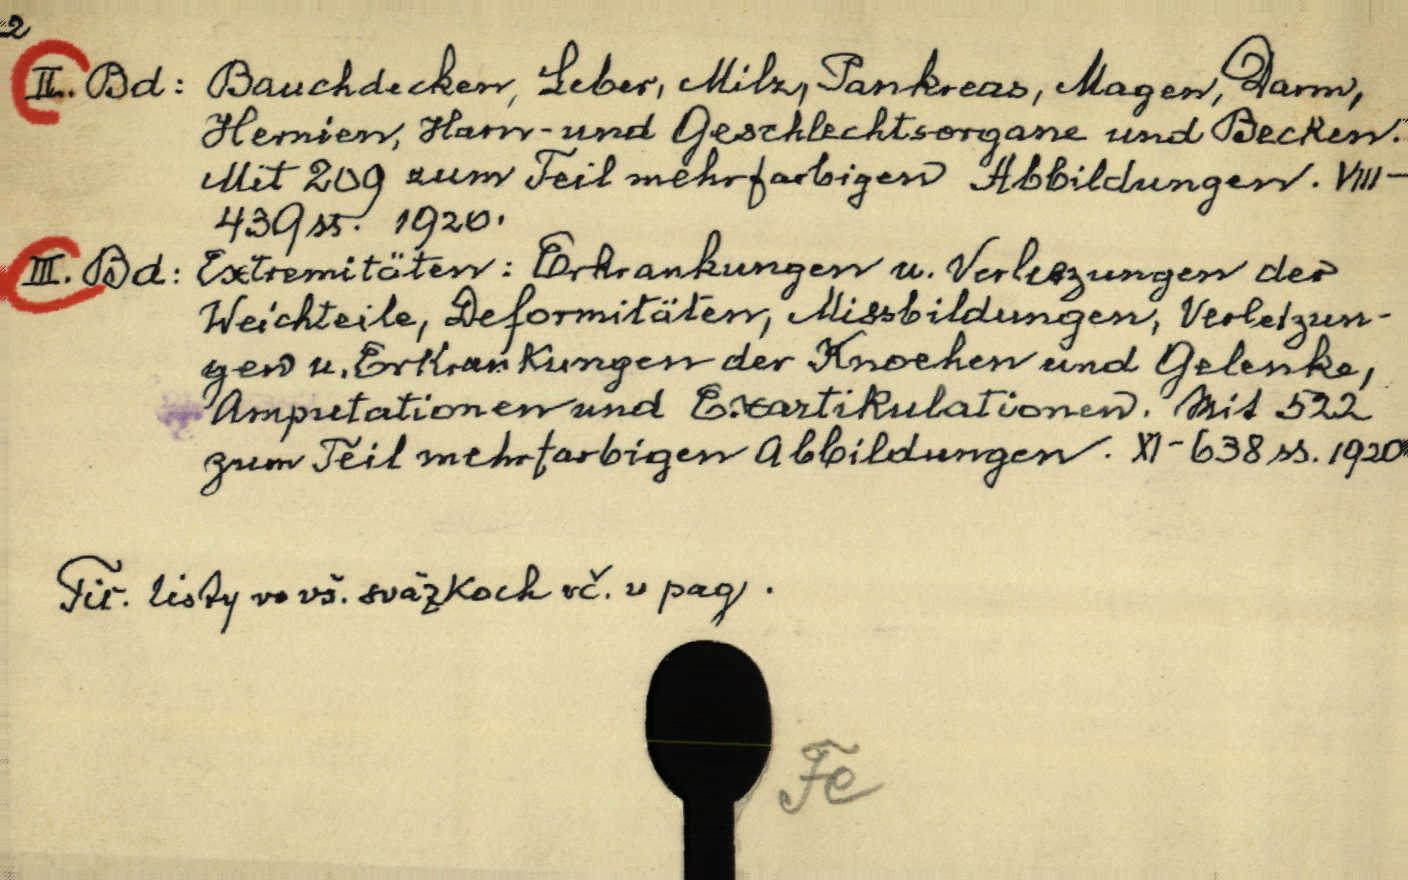 2
II. Bd: Bauchdecken, Leber, Milz, Pankreas, Magen, Darm,
Hernien, Harn-und Geschlechtsorgane und Becken.
Mit 209 zum Teil mehrfarbigen Abbildungen. VIII-
439 ss. 1920.
III. Bd: Extremitäten: Erkrankungen u. Verlezungen der
Weichteile, Deformitäten, Missbildungen, Verletzun-
gen u. Erkrankungen der Knochen und Gelenke,
Amputationen und Exartikulationen. Mit 522
zum Teil mehrfarbigen Abbildungen. XI-638 ss. 1920
Tit. listy vo vš. sväzkoch vč. v pag.
Fe